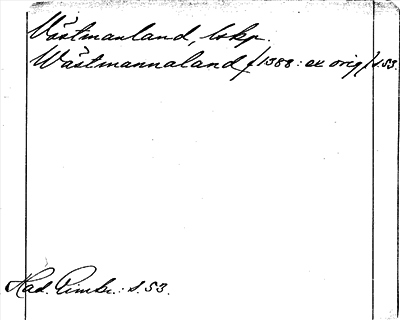 Västmanland, lskp.
Wästmannaland /1388: ex orig/ s. 53.
Had. Rimkr.: s. 53.